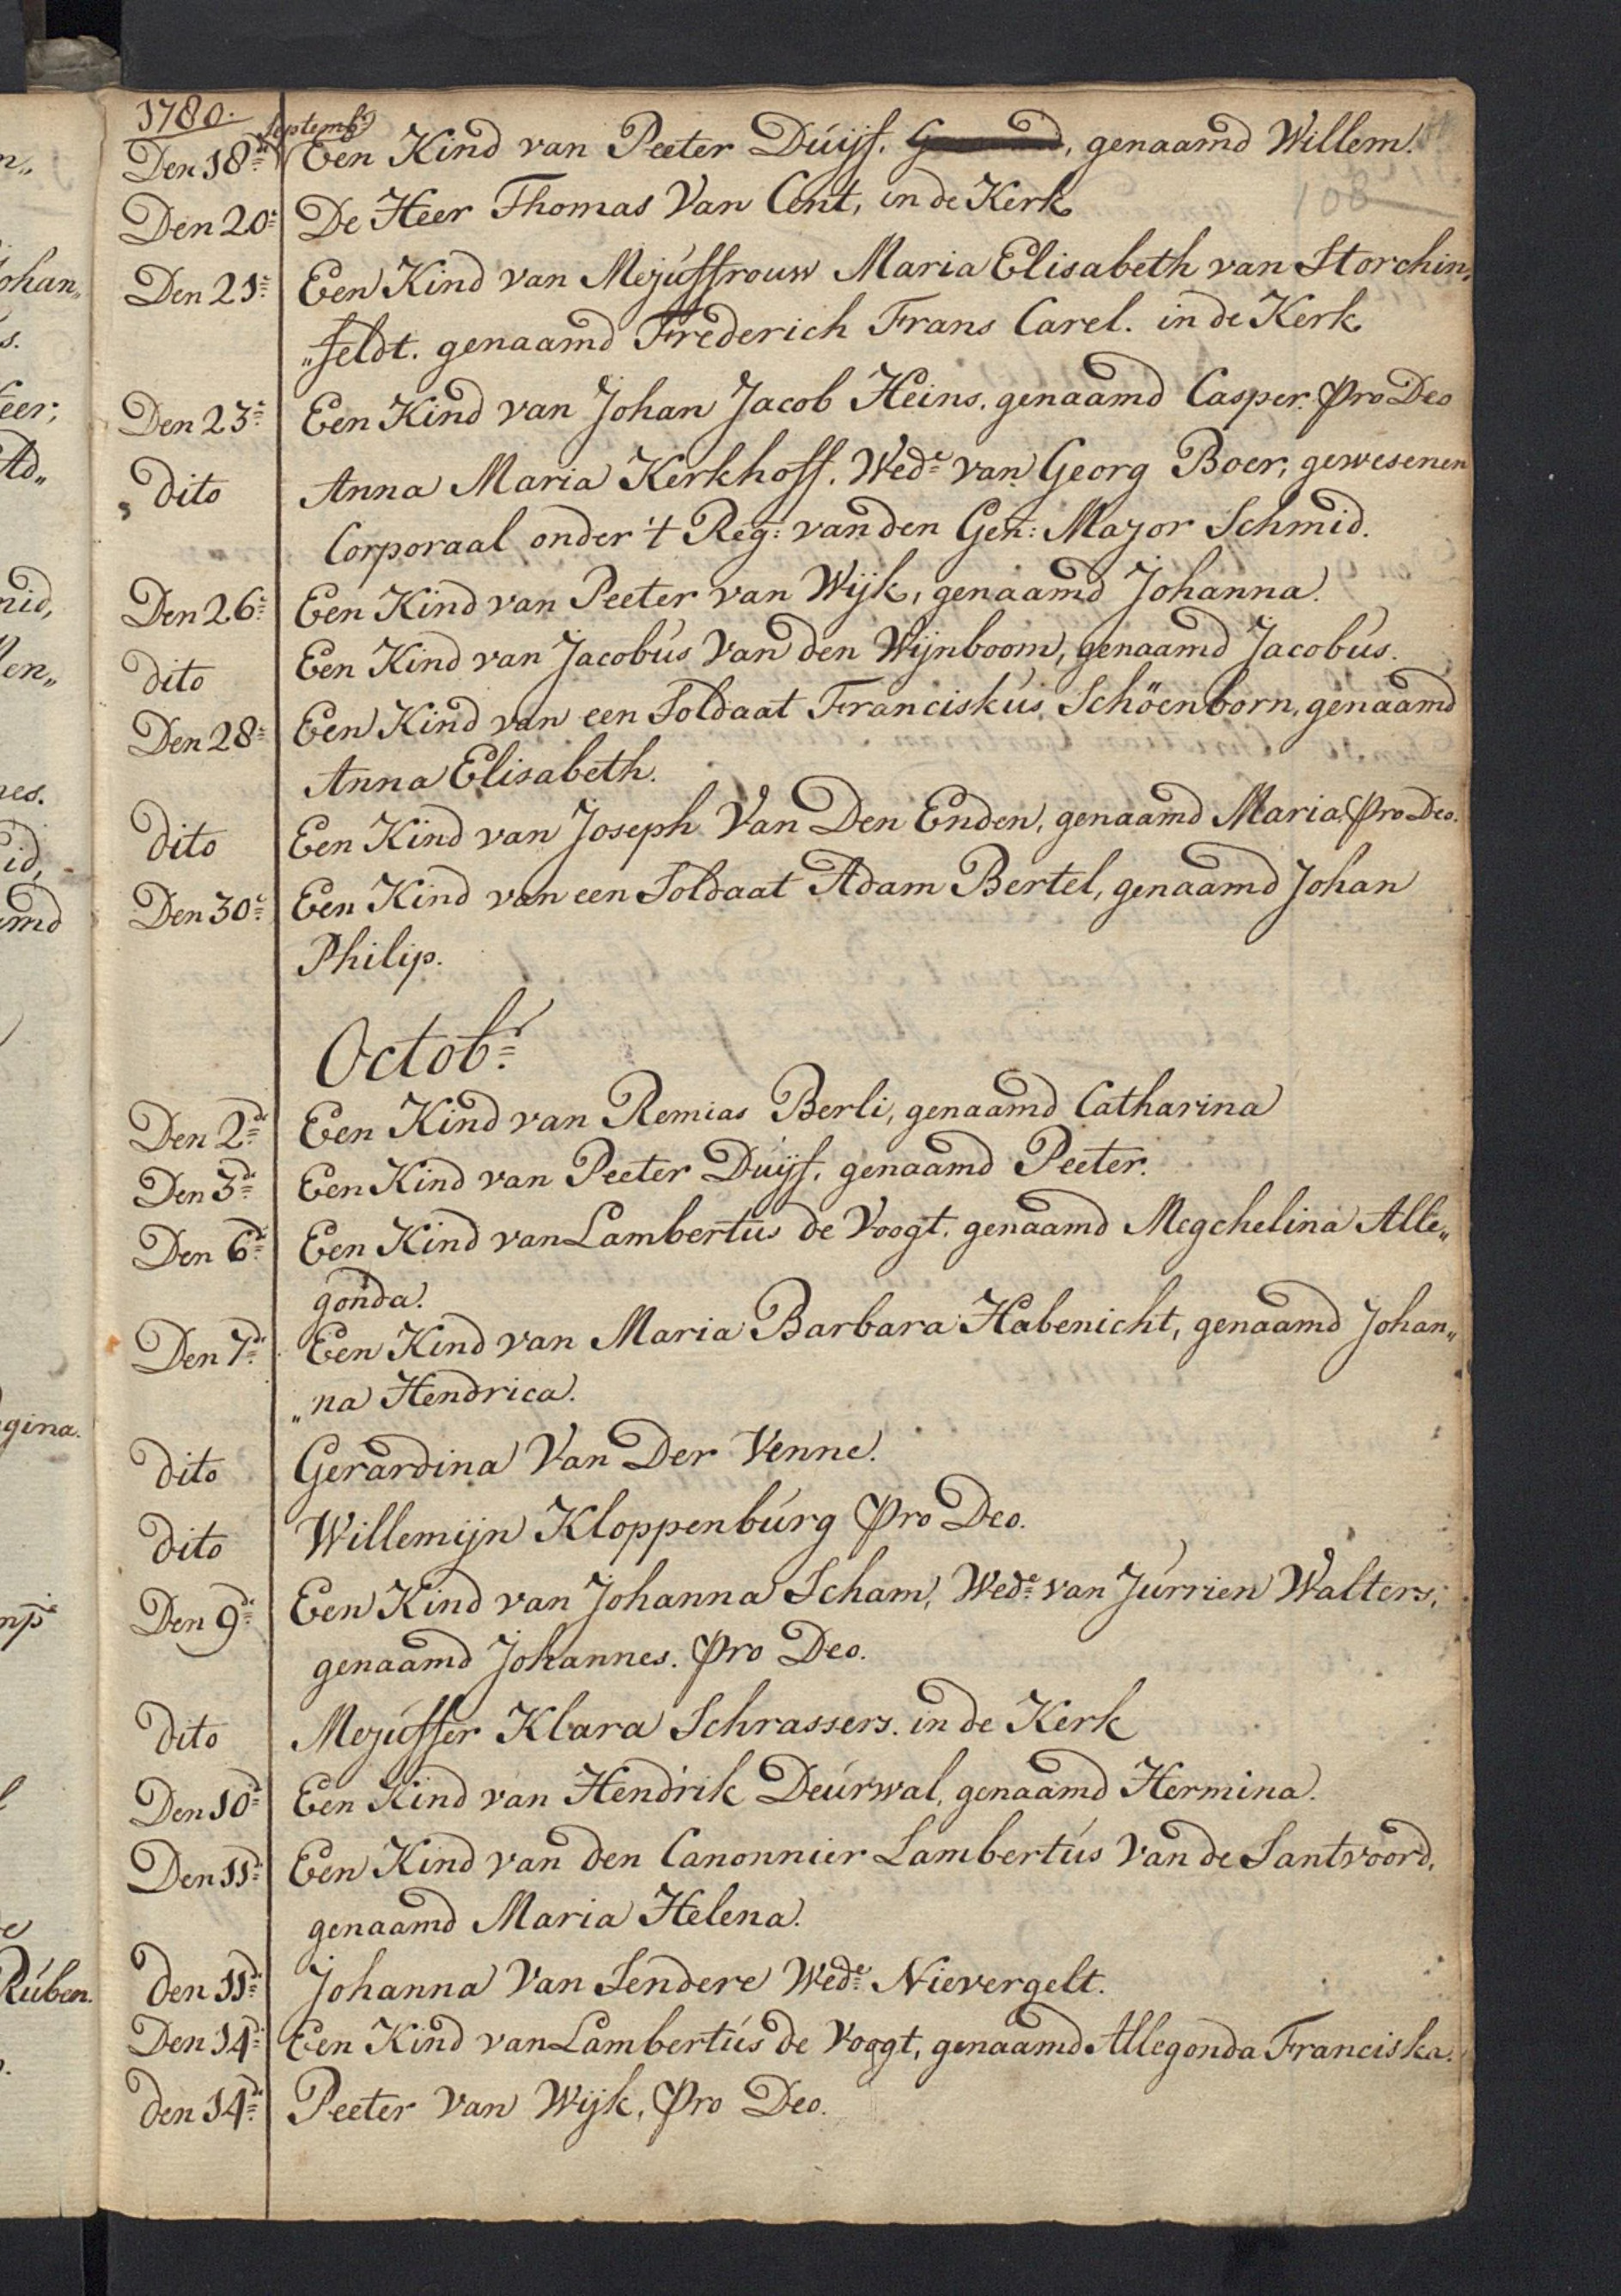 1780. Septembr
Den 18de Een Kind van Peeter Duijs. , genaamd Willem.
108
Den 20e De Heer Thomas Van Cent, in de Kerk
Den 21e Een Kind van Mejuffrouw Maria Elisabeth van Storchin„
„feldt. genaamd Frederich Frans Carel. in de Kerk
Den 23e Een Kind van Johan Jacob Heins. genaamd Casper. Pro Deo
dito Anna Maria Kerkhoff. Wede van Georg Boer, gewesenen
Corporaal onder 't Reg: van den Gen: Major Schmid.
Den 26e Een Kind van Peeter van Wijk, genaamd Johanna.
dito Een Kind van Jacobus Van den Wijnboom, genaamd Jacobus.
Den 28e Een Kind van een Soldaat Franciskus Schöenborn, genaamd
Anna Elisabeth.
dito Een Kind van Joseph Van Den Enden, genaamd Maria. Pro Deo.
Den 30e Een Kind van een Soldaat Adam Bertel, genaamd Johan
Philip.
Octobr
Den 2de Een Kind van Remias Berli, genaamd Catharina
Den 3de Een Kind van Peeter Duijs. genaamd Peeter.
Den 6de Een Kind van Lambertus de Voogt. genaamd Megchelina Alle„
gonda.
Den 7de Een Kind van Maria Barbara Habenicht, genaamd Johan„
„na Hendrica.
dito Gerardina Van Der Venne.
dito Willemijn Kloppenburg Pro Deo.
Den 9de Een Kind van Johanna Scham, Wede van Jurrien Walters,
genaamd Johannes. Pro Deo.
dito Mejuffer Klara Schrassers. in de Kerk
Den 10de Een Kind van Hendrik Deurwal, genaamd Hermina.
Den 11de Een Kind van den Canonnier Lambertus Van de Santvoord,
genaamd Maria Helena.
den 11de Johanna Van Sendere Wede Nievergelt.
Den 14de Een Kind van Lambertus de Voogt, genaamd Allegonda Franciska.
den 14de Peeter Van Wijk, Pro Deo.